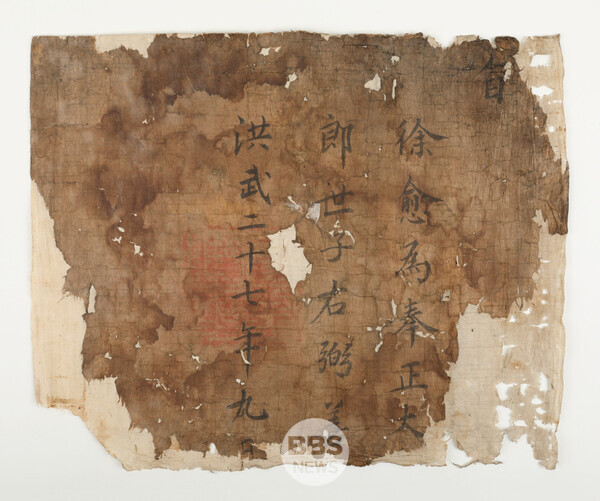 旨
徐愈為奉正大
郎世子右弼善
洪武二十七年九月
BBS
NEWS